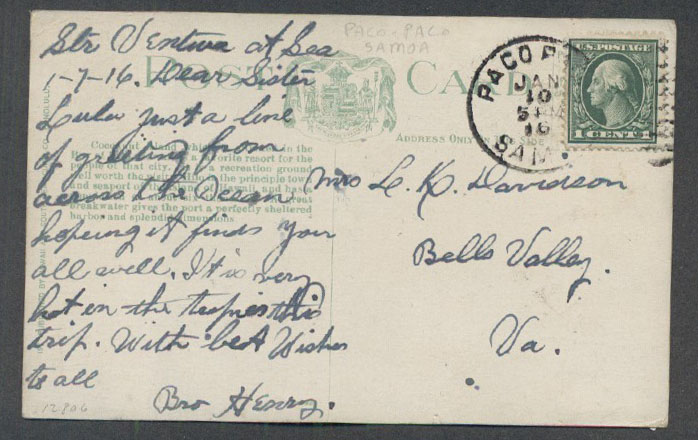 PACO-PACO
SAMOA
Str Ventura at Sea
1-7-16. Dear Sister
Lula just a line
of greeting from
across the Ocean
hopeing it finds you
all well. It is very
hot in the tropics this
trip. With best Wishes
to all
Bro Henry.
12806
POST CARD
ADDRESS ONLY ON THIS SIDE
Cocoanut Island which in the
a favorite resort for the
people of that city, a recreation ground
well worth the principle town
and seaport of of Hawaii, and has
great
breakwater gives the port a perfectly sheltered
harbor and splendid dimensions.
PACO P
JAN
10
5
16
SAM
U.S. POSTAGE
1 CENT 1
Mrs L. K. Davidson
Bells Valley.
Va.